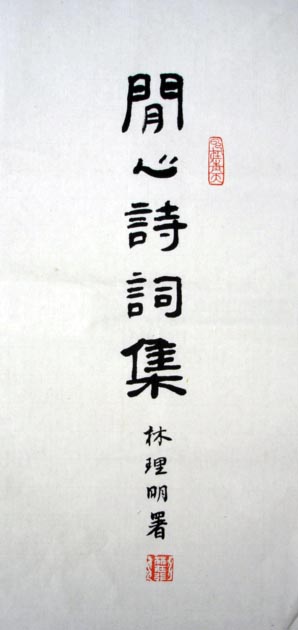 閒心詩詞集
林理明署